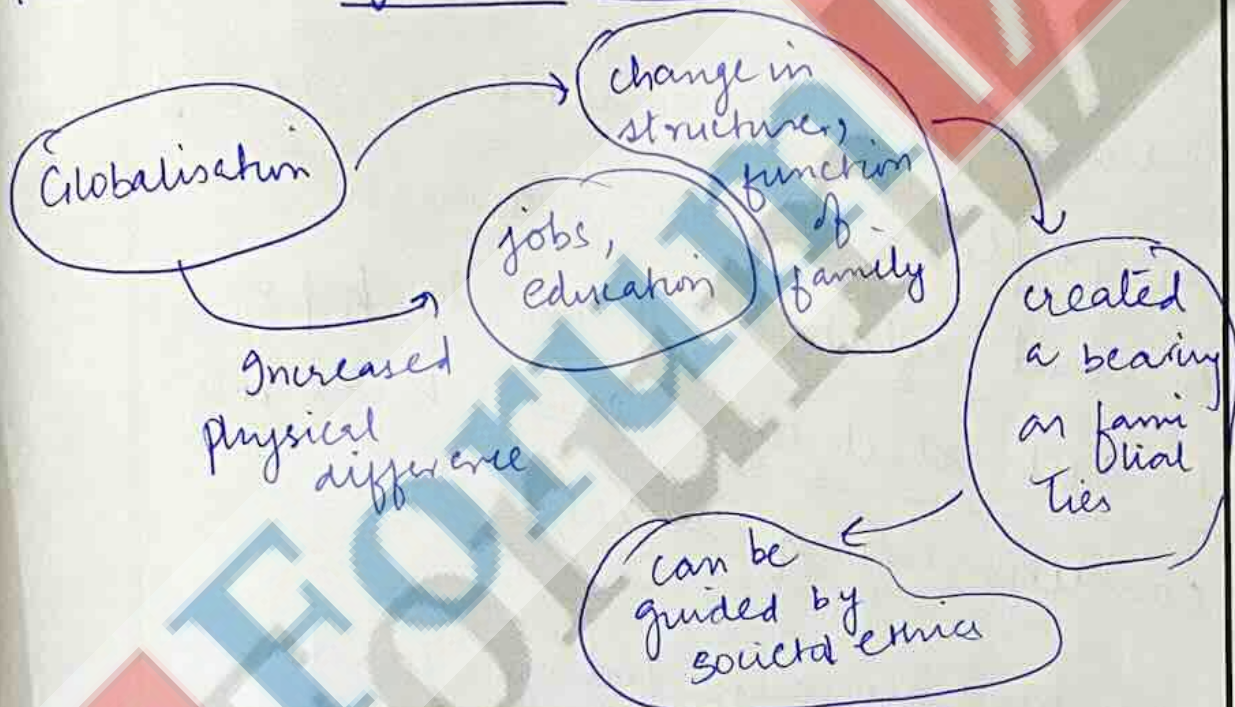 Globalisation
change in
structure,
function
of
family
jobs,
education
Increased
physical
difference
created
a bearing
on fami
lial
Ties
can be
guided by
societal ethics
Forum